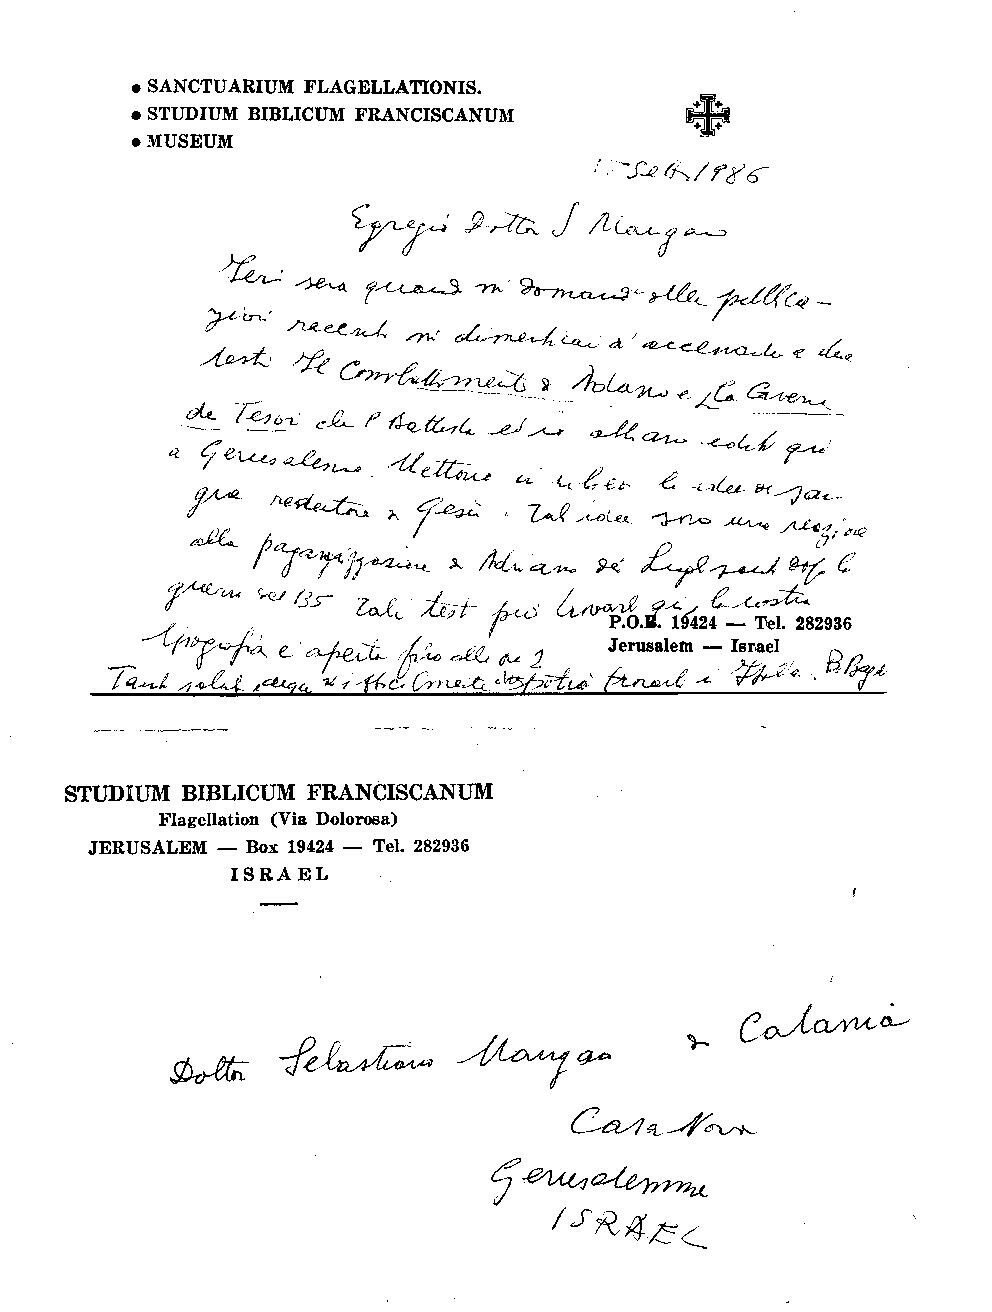 • SANCTUARIUM FLAGELLATIONIS.
• STUDIUM BIBLICUM FRANCISCANUM
• MUSEUM
Sett 1986
Egregio Dottor S Mangano
Ieri sera quando mi domandò delle pubblica-
zioni recenti mi dimenticai d'accennarle a due
testi Il Combattimento di Adamo e La Caverna
dei Tesori che P Battista ed io abbiamo editi qui
a Gerusalemme. Mettono in rilievo le idee di san-
gue redentore di Gesù. Tali idee sono una reazione
alla paganizzazione di Adriano dei Luoghi santi dopo la
guerra del 135 Tali testi può trovarli qui, la nostra
tipografia è aperta fino alle ore 2
P.O.B. 19424 — Tel. 282936
Jerusalem — Israel
Tanti saluti difficilmente potrà trovarli in Italia. B. Bagatti
STUDIUM BIBLICUM FRANCISCANUM
Flagellation (Via Dolorosa)
JERUSALEM — Box 19424 — Tel. 282936
ISRAEL
Dottor Sebastiano Mangano di Catania
Casa Nova
Gerusalemme
ISRAEL